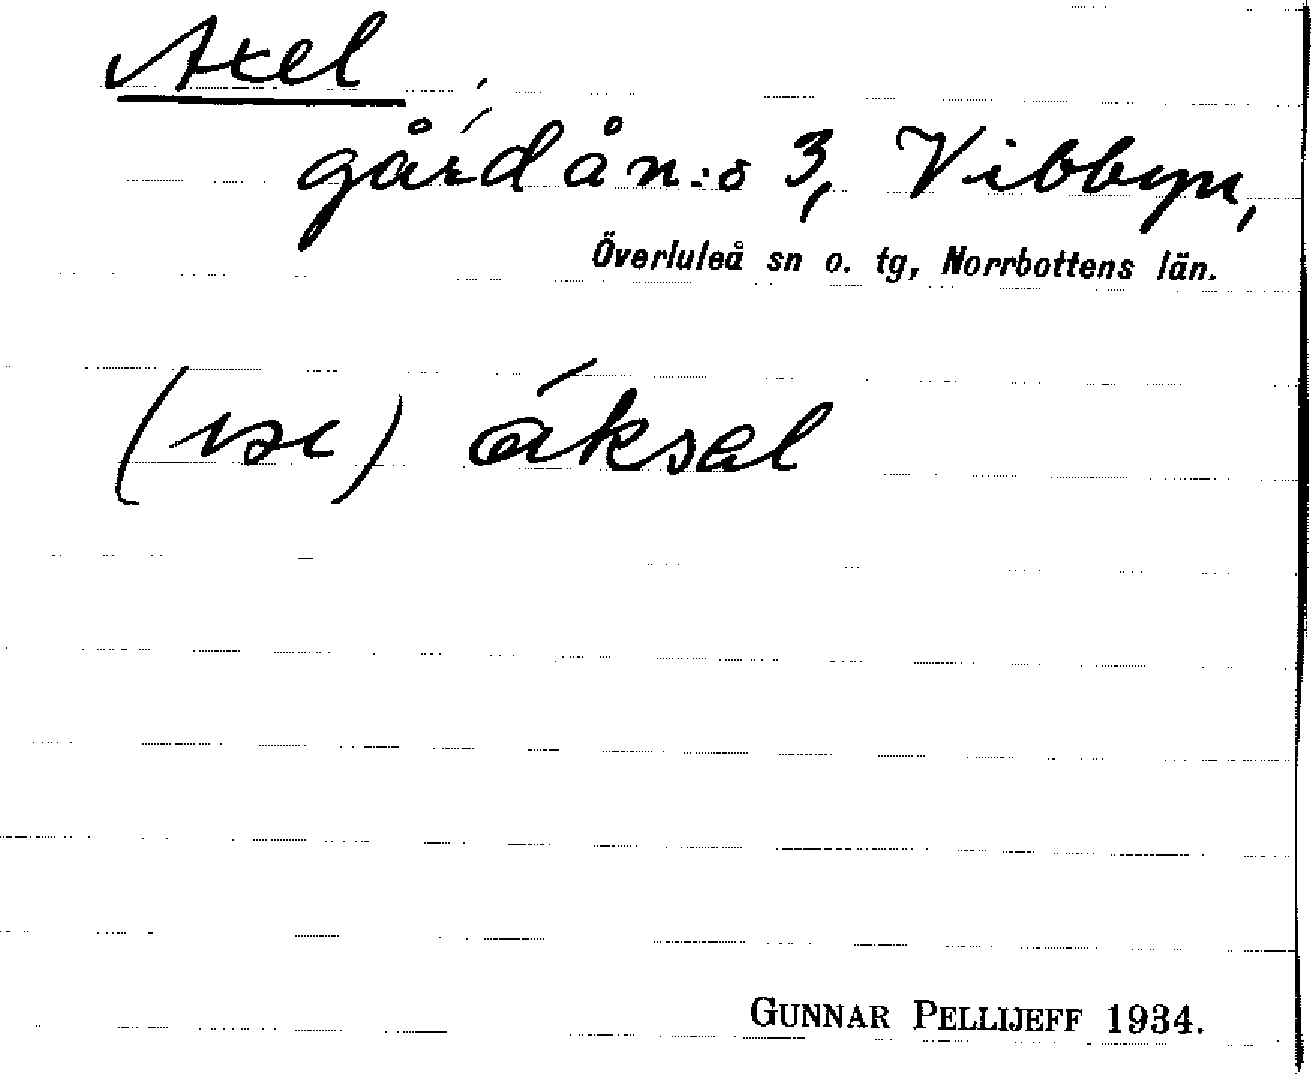 Axel
gård å n:o 3, Vibbyn,
Överluleå sn o. tg, Norrbottens län.
áksel
GUNNAR PELLIJEFF 1934.